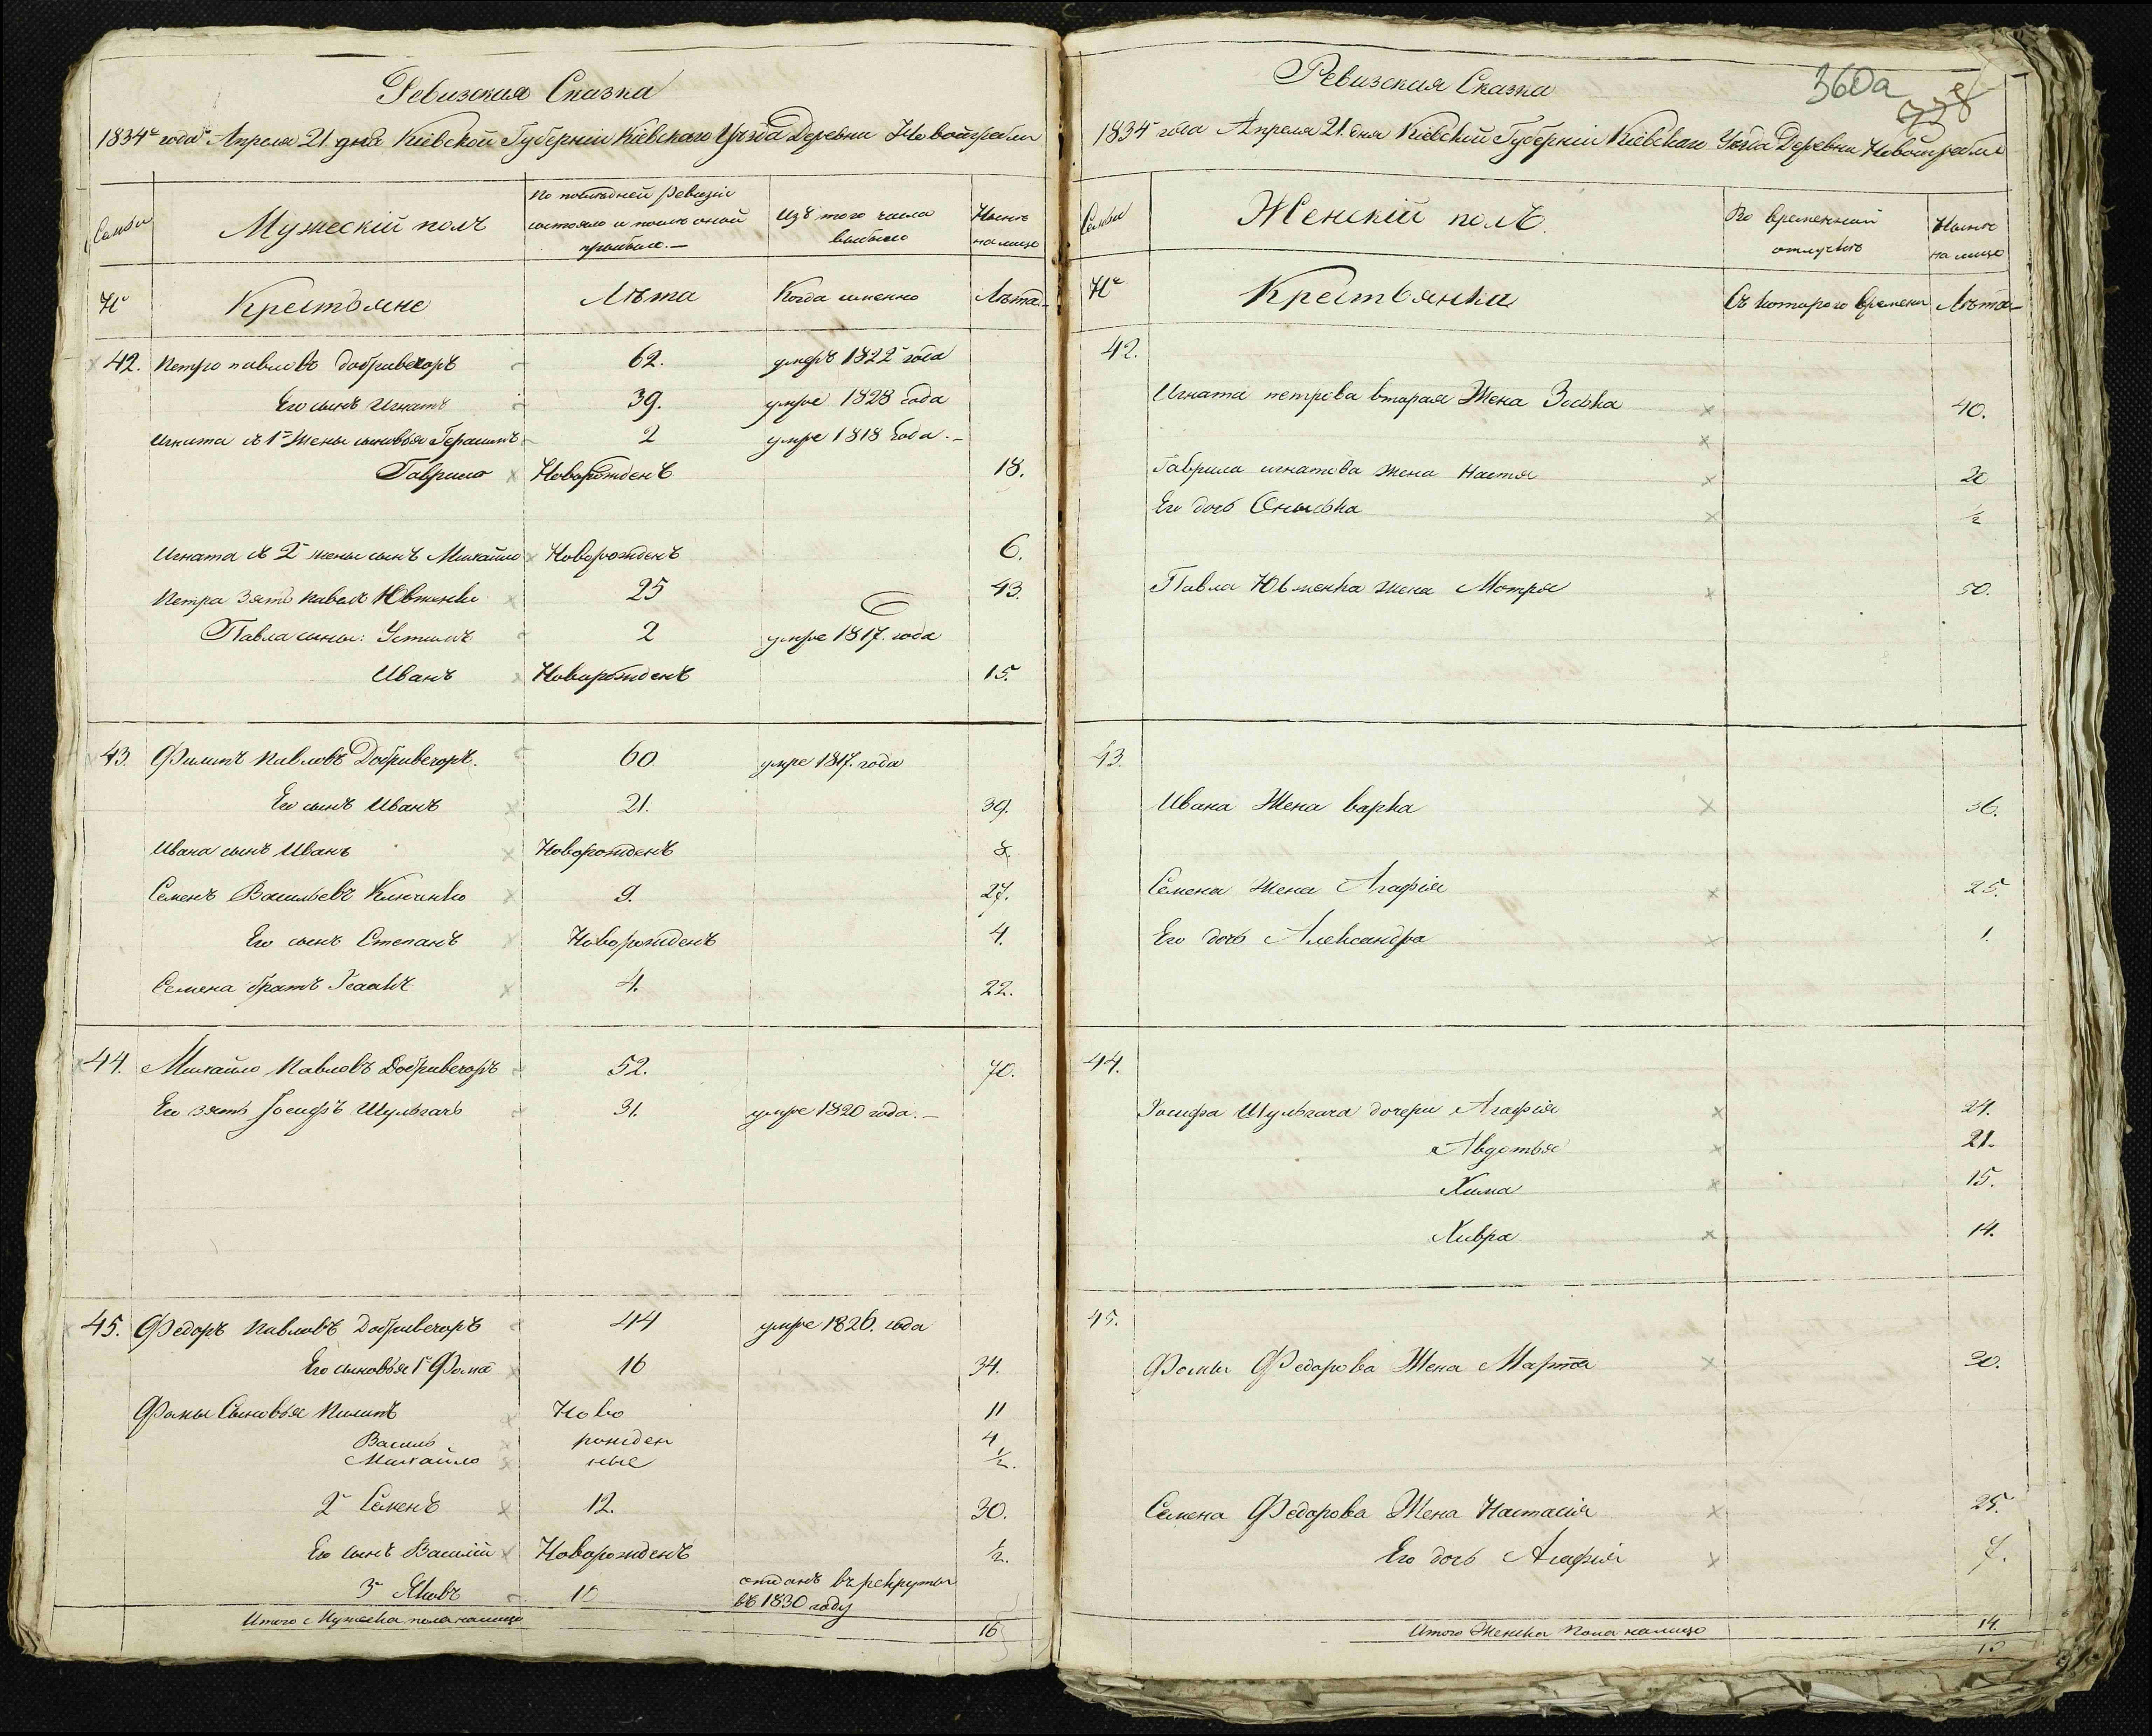 Ревизская Сказка
1834го года Апреля 21 дня Кіевской Губерніи Кіевскаго Уѣзда Деревни Новойгребли
Семьи
Мужескій полъ
По послѣдней ревизіи состояло и послѣ оной прибыло.—
Изъ того числа выбыло
Нынѣ на лицо
№
Крестьяне
Лѣта
Когда именно
Лѣта
42. Петро павловъ добривечоръ 62. умеръ 1822 года
Его сынъ Игнатъ 39. умре 1828 года
Игната съ 1й жены сыновья Герасимъ 2 умре 1818 года.—
Гаврило Новорожденъ 18.
Игната съ 2й жены сынъ Михайло Новорожденъ 6.
Петра зять павелъ Ювженко 25 43.
Павла сыны: Устимъ 2 умре 1817. года
Иванъ Новорожденъ 15.
43. Филипъ Павловъ Добривечоръ. 60. умре 1817. года
Его сынъ Иванъ 21. 39.
Ивана сынъ Иванъ Новорожденъ 8.
Семенъ Васильевъ Ключенко 9. 27.
Его сынъ Степанъ Новорожденъ 4.
Семена братъ Ісаакъ 4. 22.
44. Михайло Павловъ Добривечоръ 52. 70.
Его зять Іосифъ Шульгачъ 31. умре 1820 года.—
45. Федоръ Павловъ Добривечоръ 44 умре 1826. года
Его сыновья 1й Фома 16 34.
Фомы Сыновья Пилипъ Ново 11
Василь рожден 4
Михайло ные ½.
2й Семенъ 12. 30.
Его сынъ Василій Новорожденъ ½.
3й Яковъ 10 отданъ въ рекруты въ 1830 году
Итого Мужеска пола налицо 16
360а
778
Ревизская Сказка
1834 года Апреля 21. дня Кіевской Губерніи Кіевскаго Уѣзда Деревни Новойгребли
Семьи
Женскій полъ.
Во временной отлучкѣ
Нынѣ на лицо
№
Крестьянки
Съ котораго времени
Лѣта
42.
Игната петрова вторая Жена Зоська 40.
Гаврила игнатова жена Настя 20
Его дочь Оныська ½
Павла Ювженка жена Мотря 50.
43.
Ивана Жена варка 36.
Семена Жена Агафія 25.
Его дочь Александра 1.
44.
Іосифа Шульгача дочери Агафія 24.
Авдотья 21.
Хима 15.
Хивра 14.
45.
Фомы Федорова Жена Марта 30.
Семена Федорова Жена Настасія 25.
Его дочь Агафія 7.
Итого Женска Пола налицо 14.